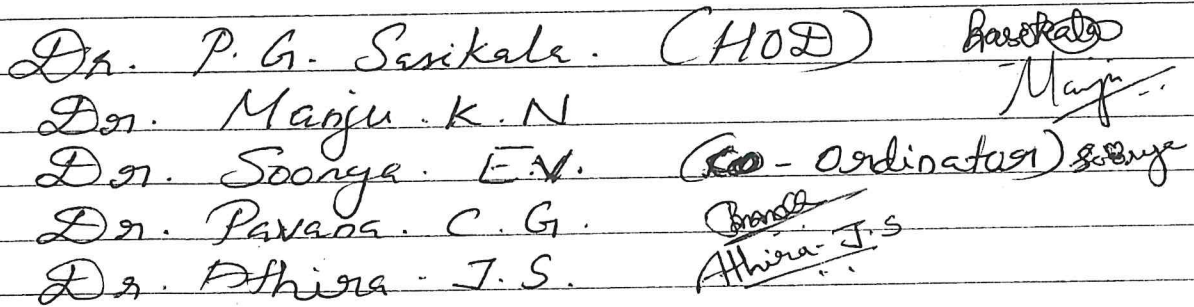 Dr. P. G. Sasikala. (HOD) Sasikala
Dr. Manju . K . N Manju
Dr. Soorya . E.V. (Co - ordinator) Soorya
Dr. Pavana . C . G .
Dr. Athira . J. S. Athira . J. S